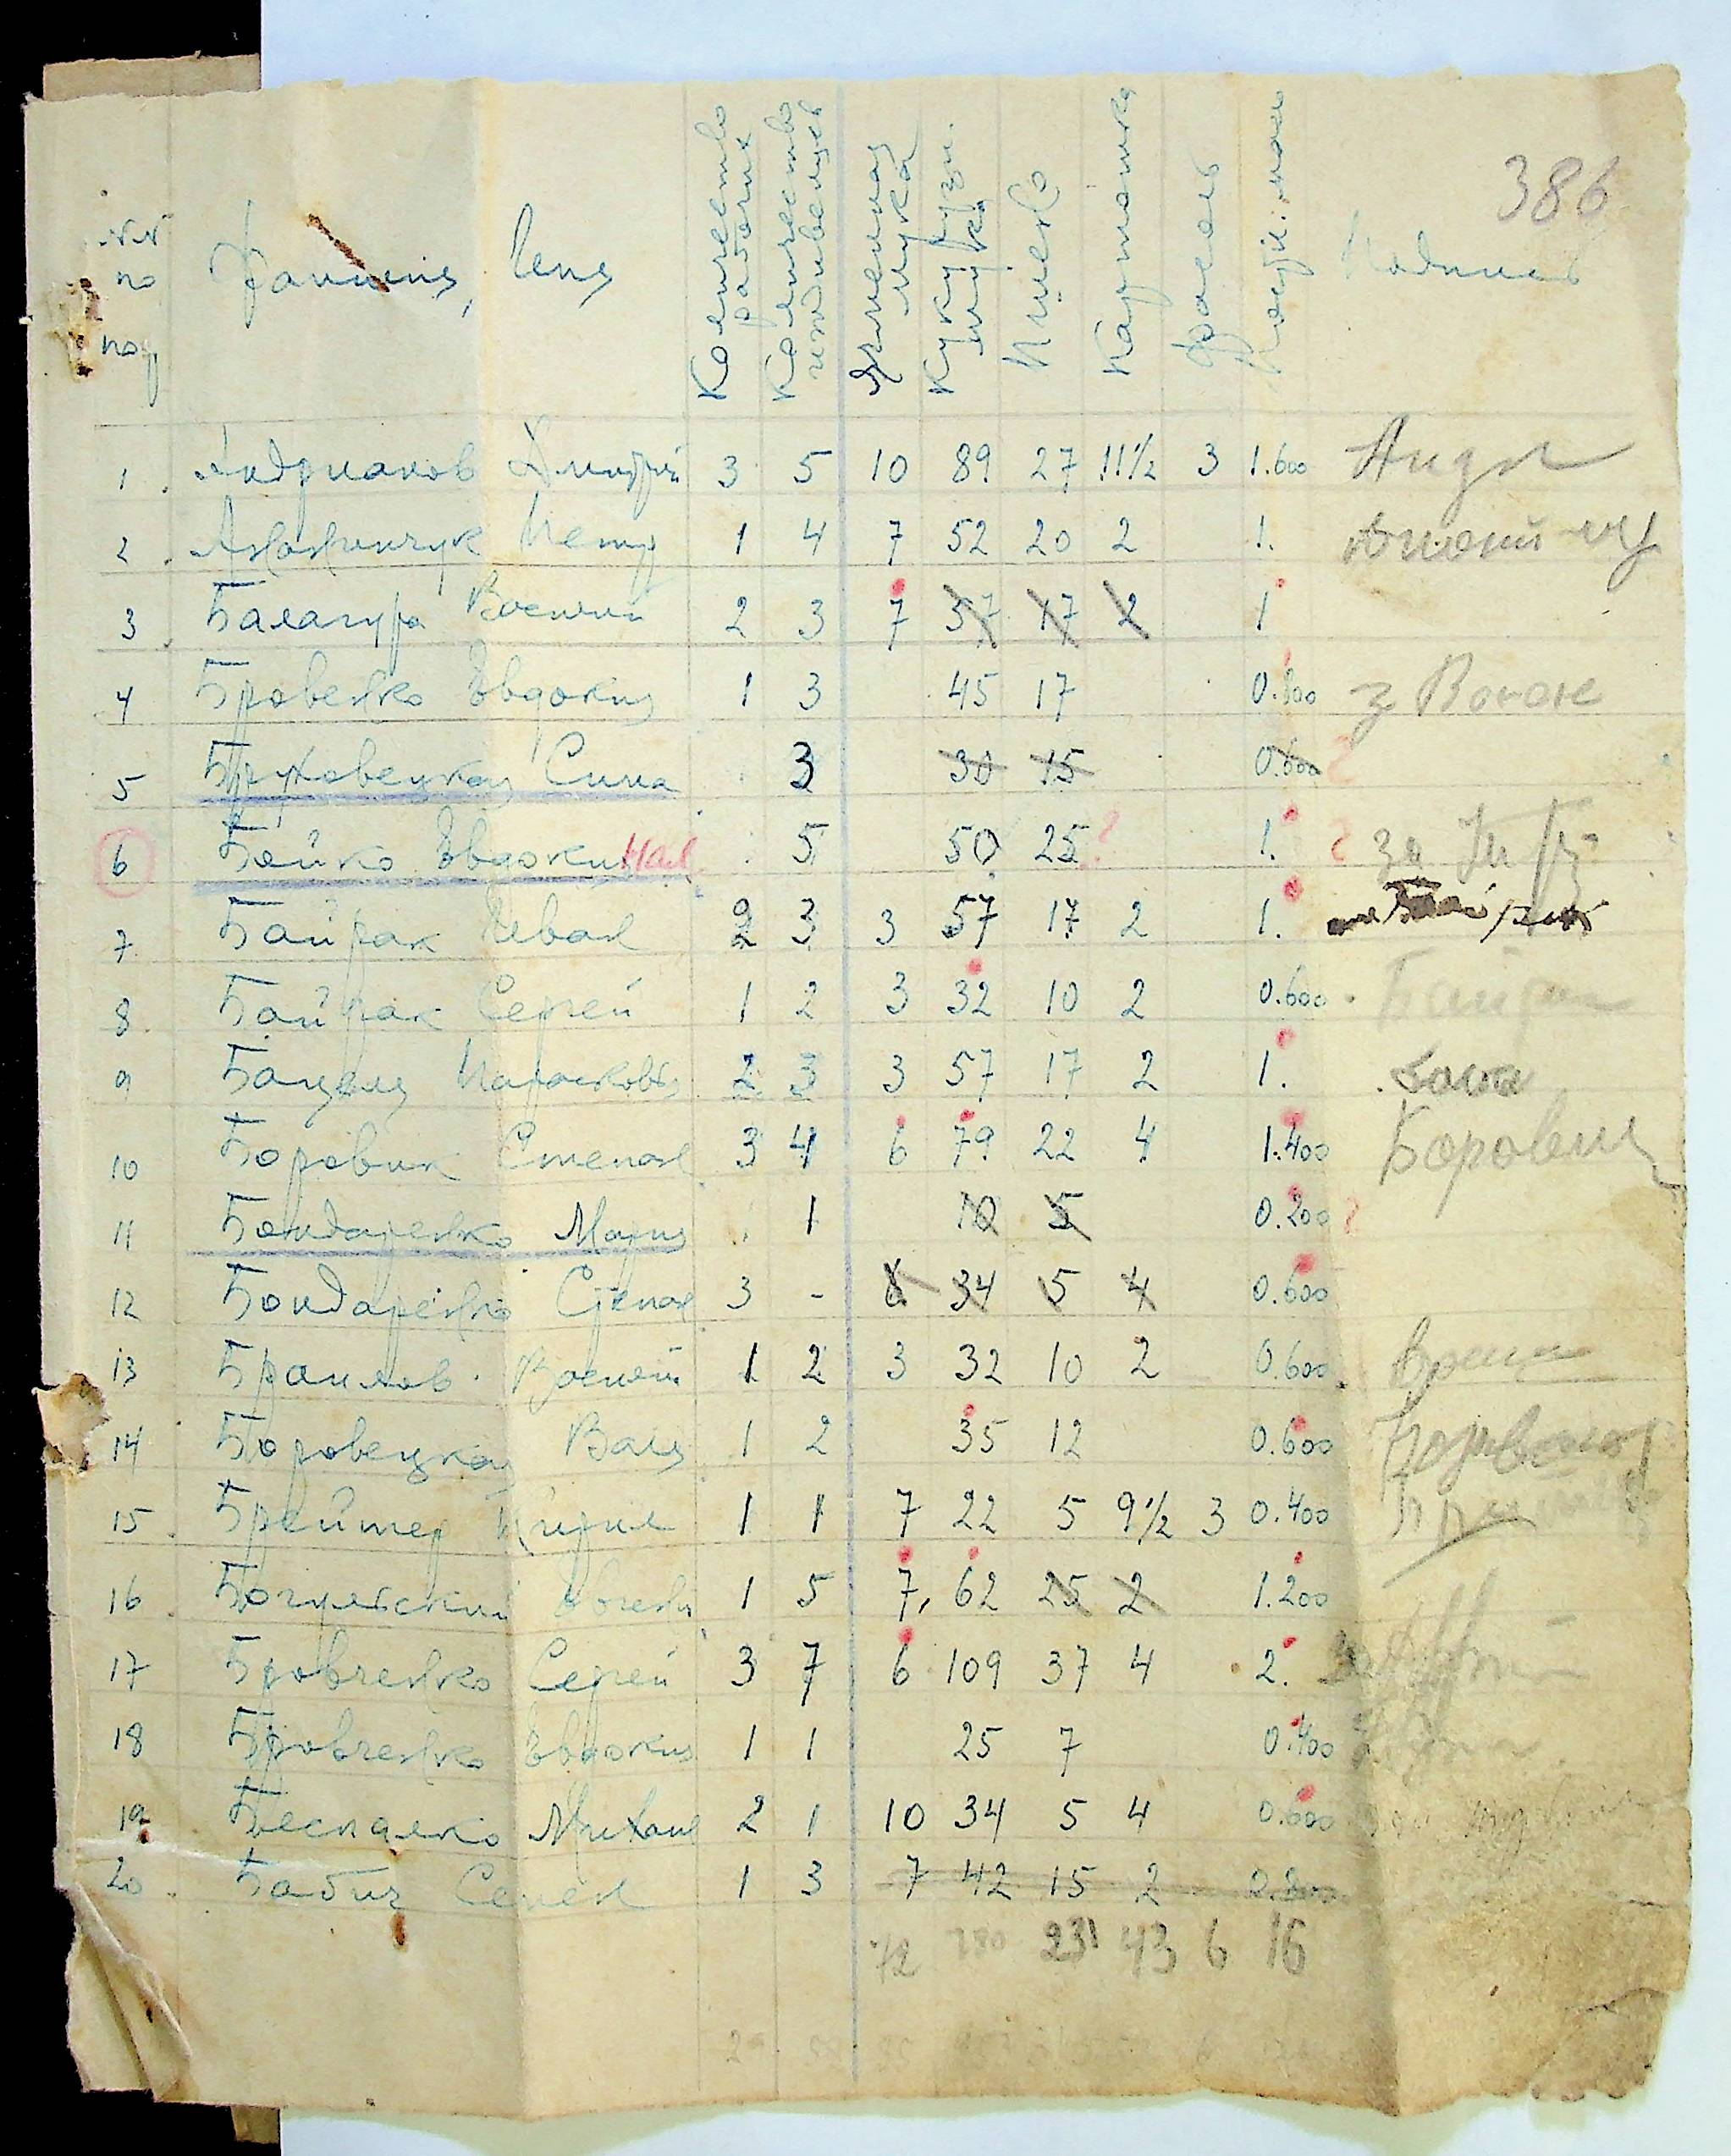 386
№№ по пор
Фамилия, Имя
Количество рабочих
Количество иждивенцев
Ячменная мука
Кукуруз. мука
Пшено
Картошка
Фасоль
Подпись
1 Андрианов Дмитрий 3 5 10 89 27 11½ 3 1.600 Андр
2 Петр 1 4 7 52 20 2 1.
3 Балагура Василий 2 3 7 57 17 2 1
4 Бровенко Евдокия 1 3 45 17 0.800 з
5 Бруховецкая Сима 3 30 15 0.600 ?
6 Бойко Евдокия 5 50 25 ? 1. ? за
7 Байрак Иван 2 3 3 57 17 2 1.
8 Байрак Сергей 1 2 3 32 10 2 0.600 Байрак
9 Бацеля Парасковья 2 3 3 57 17 2 1.
10 Боровик Степан 3 4 6 79 22 4 1.400 Боровик
11 Бондаренко Мария 1 10 5 0.200 ?
12 Бондаренко Степан 3 - 6 34 5 4 0.600
13 Браилов Василий 1 2 3 32 10 2 0.600
14 Боровецкая Валя 1 2 35 12 0.600
15 Бреймер Кирил 1 1 7 22 5 9½ 3 0.400
16 1 5 7 62 25 2 1.200
17 Бровченко Сергей 3 7 6 109 37 4 2.
18 Бровченко Евдокия 1 1 25 7 0.400
19 Беспалко Михаил 2 1 10 34 5 4 0.600
20 Бабич Семен 1 3 7 42 15 2 0.800
72 780 231 43 6 16